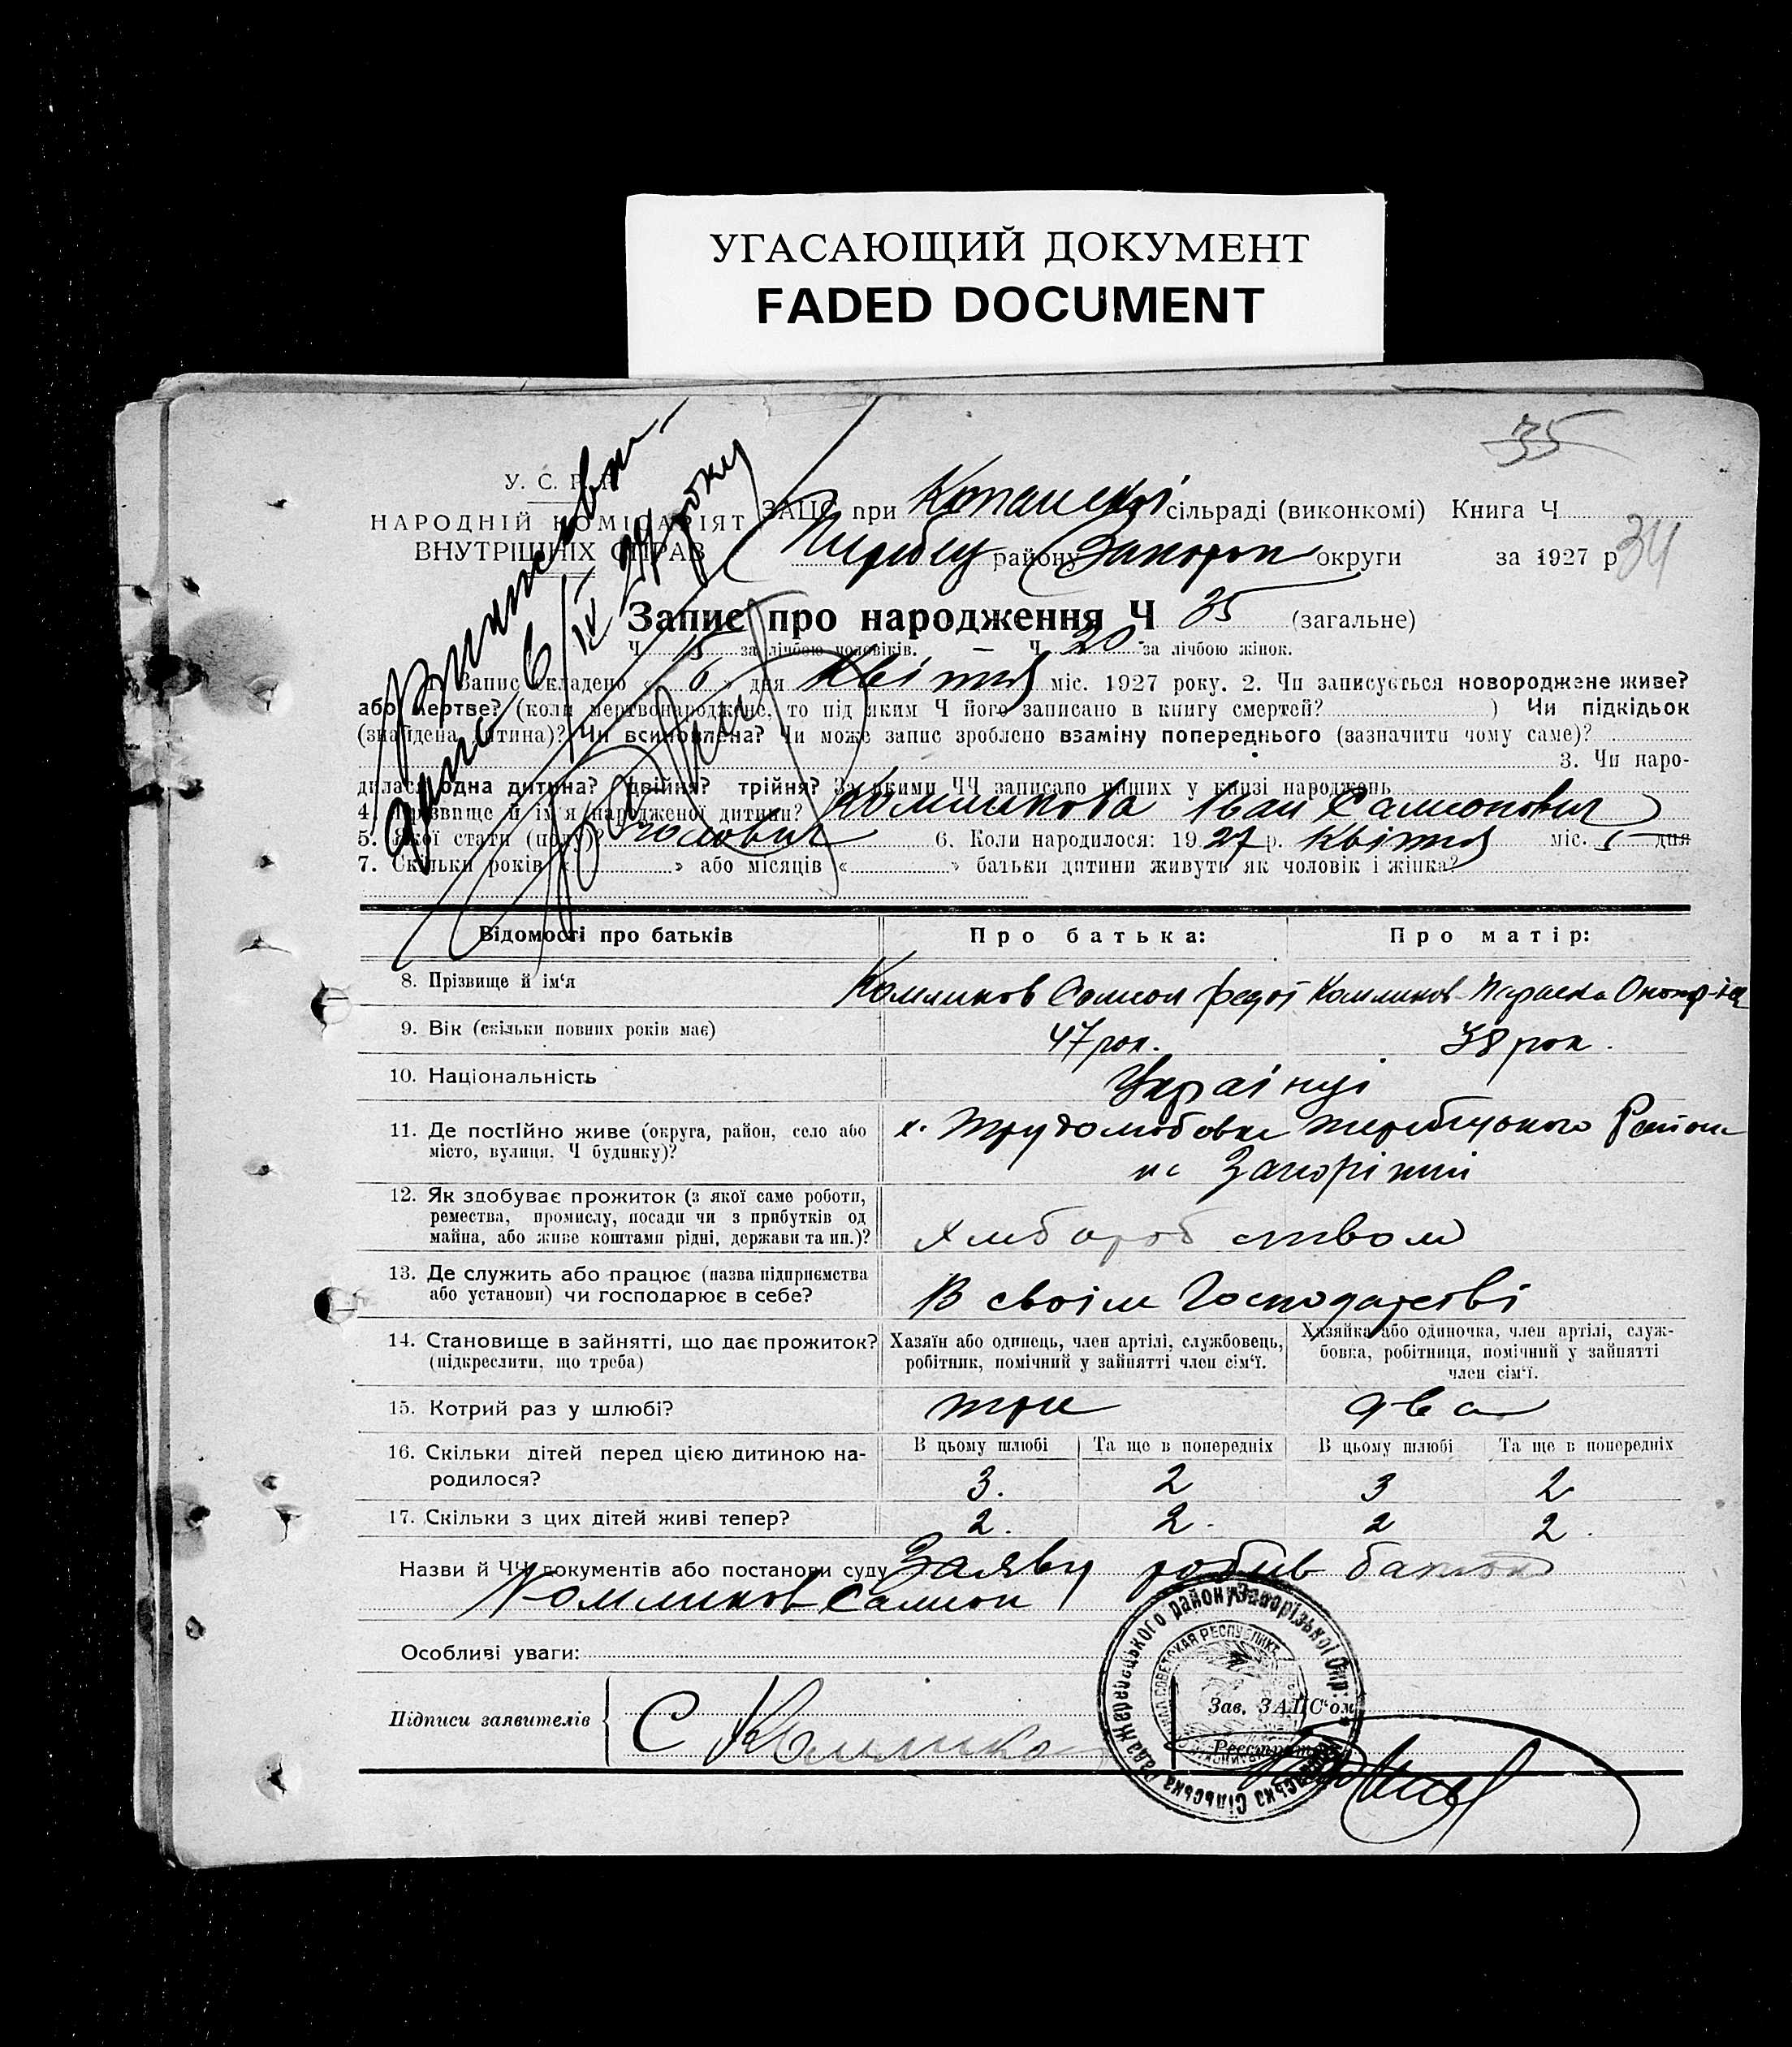 УГАСАЮЩИЙ ДОКУМЕНТ
FADED DOCUMENT
35
34
У. С. Р. Р.
НАРОДНІЙ КОМІСАРІЯТ
ВНУТРІШНІХ СПРАВ
ЗАПС при сільраді (виконкомі) Книга Ч
району округи за 1927 р
6/IV 27 року
Запис про народження Ч 35 (загальне)
Ч 15 за лічбою чоловіків. — Ч 20 за лічбою жінок.
1. Запис складено « 6 » дня Квітня міс. 1927 року. 2. Чи записується новороджене живе?
або мертве? (коли мертвонароджене, то під яким Ч його записано в книгу смертей? ) Чи підкідьок
(знайдена дитина)? Чи всиновлена? Чи може запис зроблено взаміну попереднього (зазначити чому саме)?
3. Чи наро-
дилася одна дитина? двійня? трійня? За якими ЧЧ записано инших у книзі народжень
4. Прізвище й ім'я народженої дитини? Комликова Іван Самсонович
5. Якої стати (полу)? чоловіч 6. Коли народилося: 1927 р. Квітня міс. 1 дня
7. Скільки років « » або місяців « » батьки дитини живуть як чоловік і жінка?
Відомості про батьків Про батька: Про матір:
8. Прізвище й ім'я Комликов Самсон Федоі Комликов Параска
9. Вік (скільки повних років має) 47 рок. 38 рок.
10. Національність Українці
11. Де постійно живе (округа, район, село або місто, вулиця, Ч будинку)? х. Трудолюбовка Району
на Запоріжжі
12. Як здобуває прожиток (з якої саме роботи,
ремества, промислу, посади чи з прибутків од
майна, або живе коштами рідні, держави та ин.)? Хліборобством
13. Де служить або працює (назва підприємства
або установи) чи господарює в себе? В своїм Господарстві
14. Становище в зайнятті, що дає прожиток? Хазяїн або одинець, член артілі, службовець, Хазяйка або одиночка, член артілі, служ-
(підкреслити, що треба) робітник, помічний у зайнятті член сім'ї. бовка, робітниця, помічний у зайнятті
член сім'ї.
15. Котрий раз у шлюбі? три два
16. Скільки дітей перед цією дитиною на- В цьому шлюбі Та ще в попередніх В цьому шлюбі Та ще в попередніх
родилося? 3. 2 3 2
17. Скільки з цих дітей живі тепер? 2. 2. 2 2.
Назви й ЧЧ документів або постанови суду Заяву робив батько
Комликов Самсон
Особливі уваги:
Підписи заявителів С
Зав. ЗАПС'ом
Реєстратор
району Запорізької Окр.
Сільська Рада